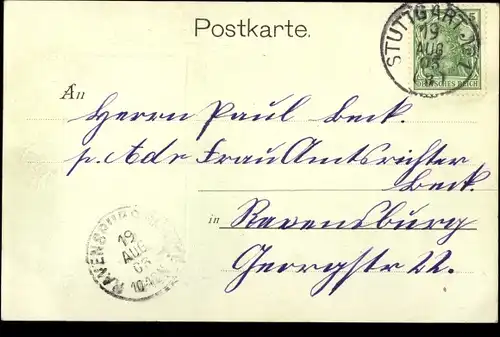 Postkarte.
STUTTGART
19
AUG
05
5
DEUTSCHES REICH
An
Herrn Paul Beck.
p. Adr Frau Amtsrichter
Beck.
in Ravensburg
Georgstr 22.
RAVENSBURG
19
AUG
05